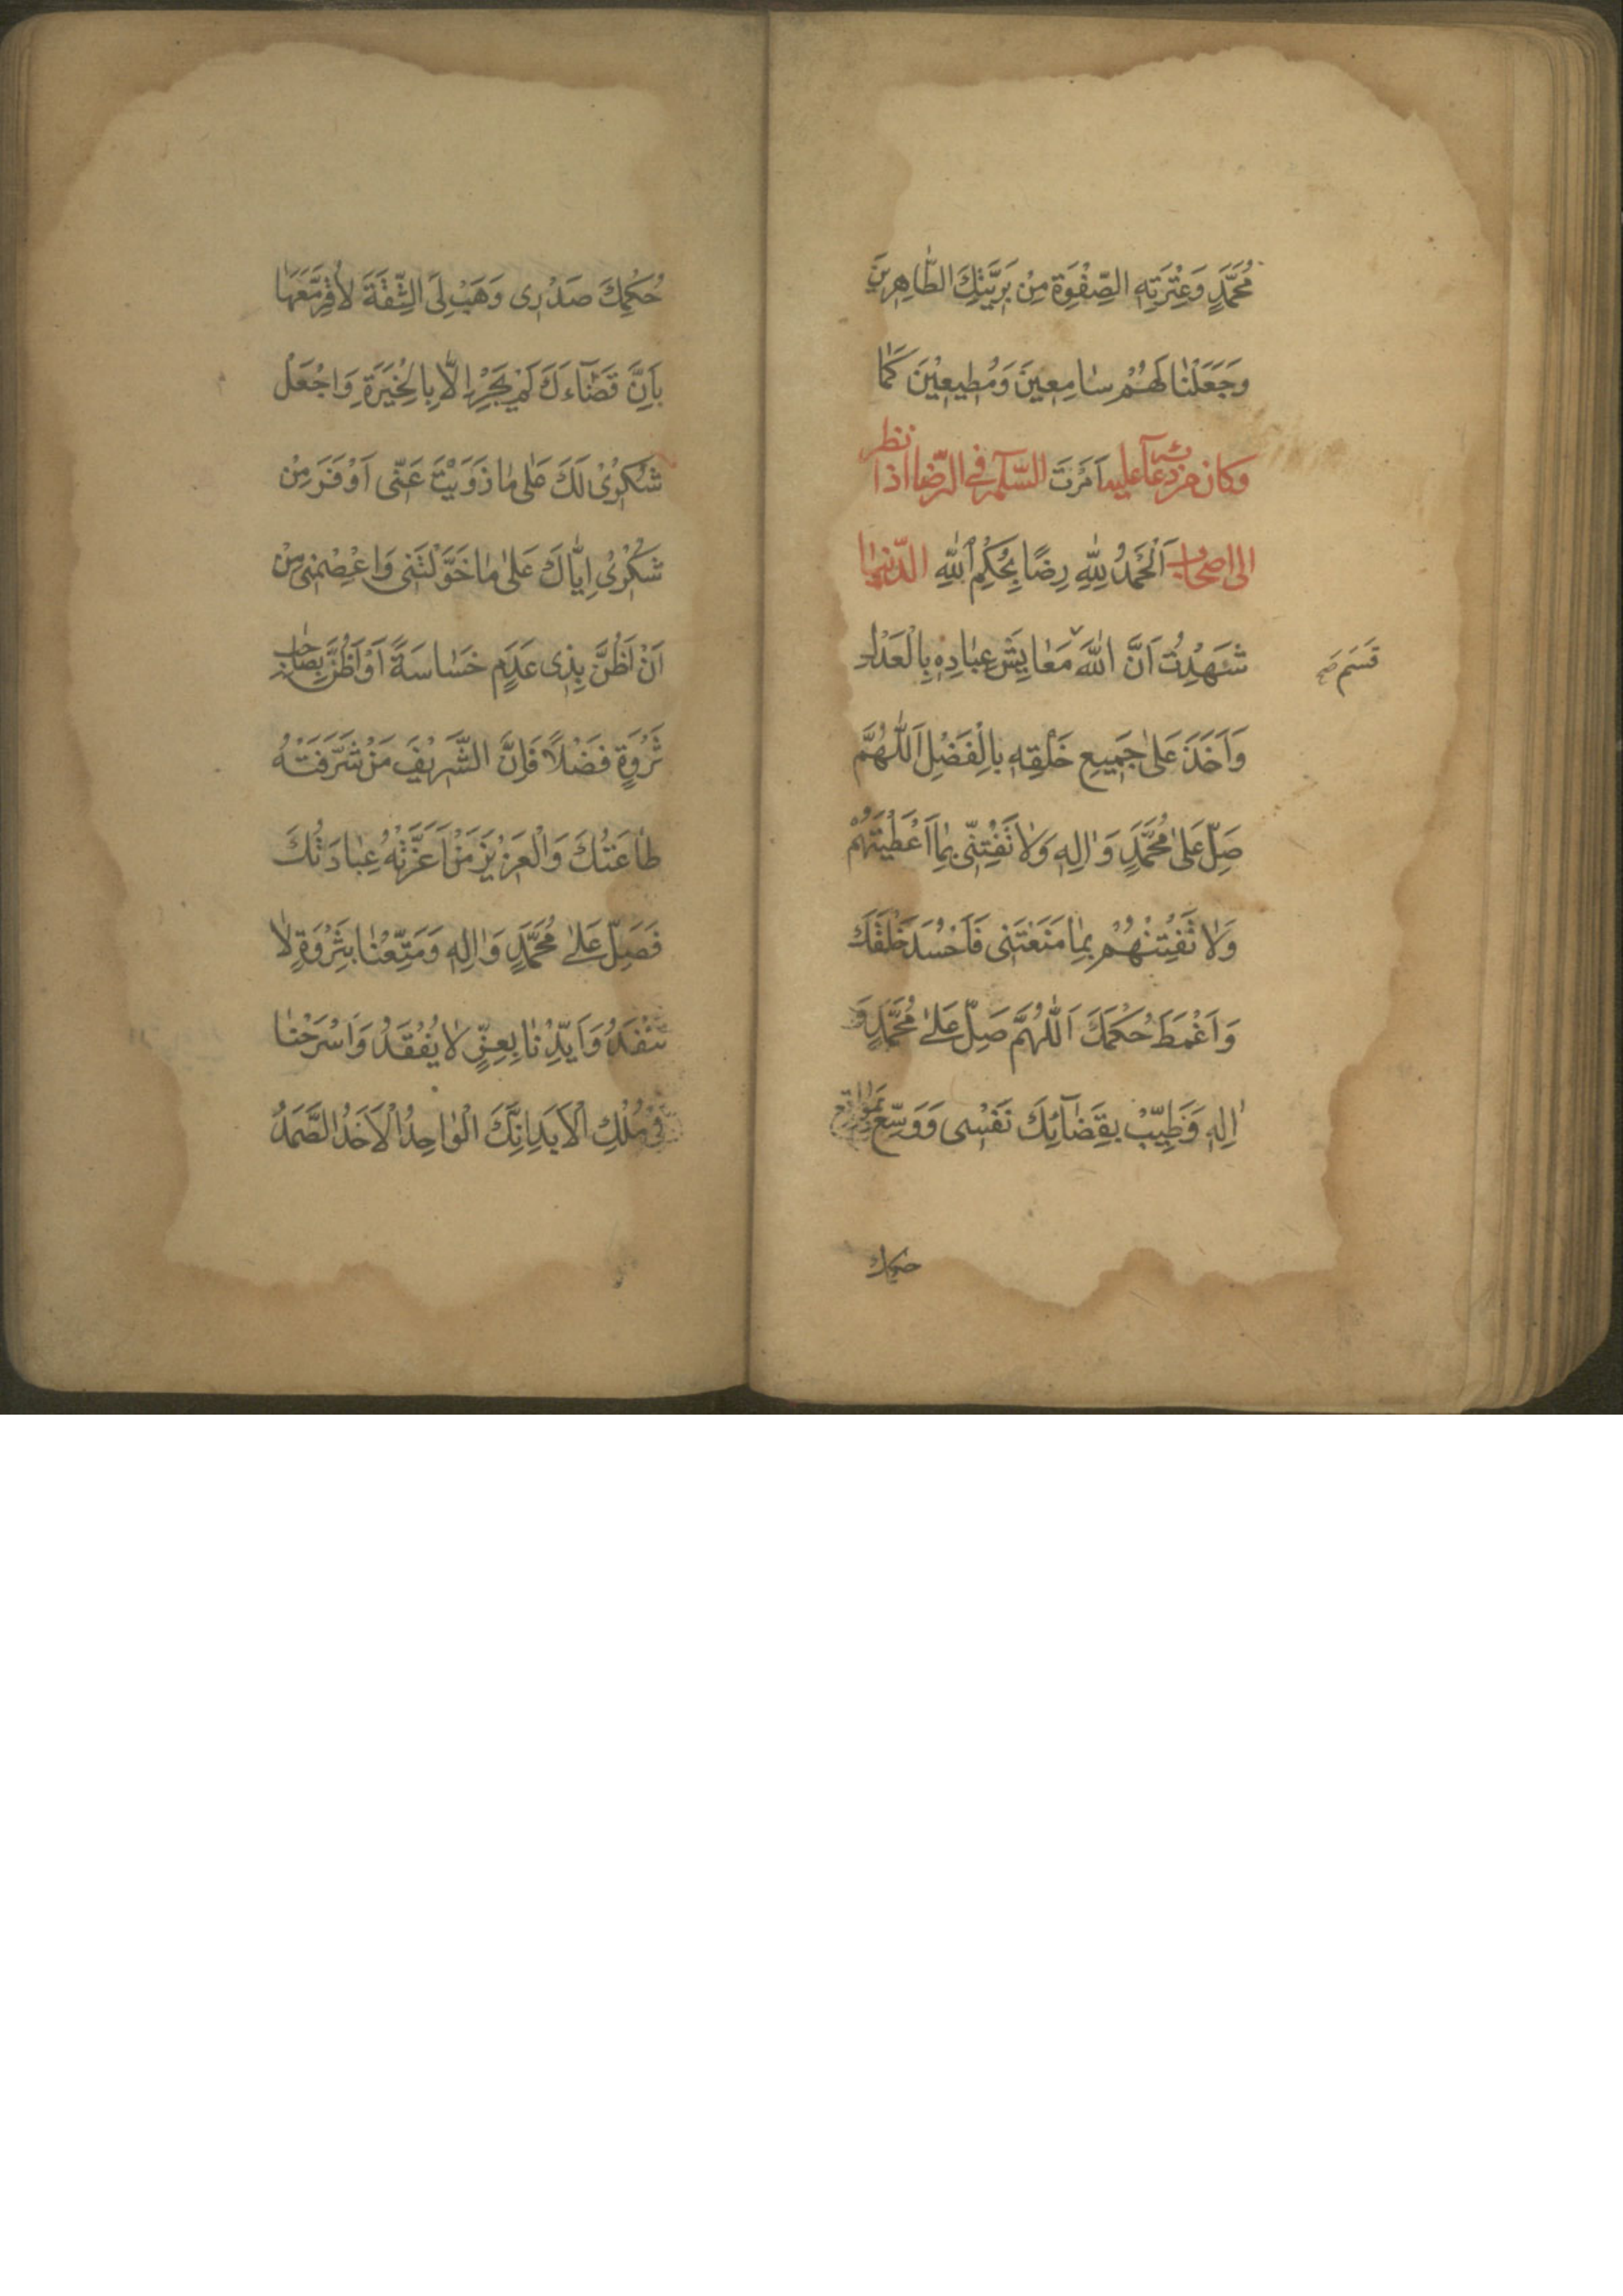 مُحَمَّدٍ وَعِتْرَتِهِ الصِّفْوَةِ مِنْ بَرِيَّتِكَ الطَّاهِرِينَ
وَجَعَلْنَا لَهُمْ سَامِعِينَ وَمُطِيعِيْنَ كَمَا
اَمَرْتَ وكان من دعآئه عليه السّلم فى الرّضا اذا نظر
الى اصحاب الدّنيا اَلْحَمْدُ لِلّٰهِ رِضًا بِحُكْمِ اللّٰهِ
شَهِدْتُ اَنَّ اللّٰهَ مَعَايِشَ عِبَادِهِ بِالْعَدْلِ
قَسَمَ صح
وَاَخَذَ عَلٰى جَمِيعِ خَلْقِهِ بِالْفَضْلِ اَللّٰهُمَّ
صَلِّ عَلٰى مُحَمَّدٍ وَاٰلِهِ وَلَا تَفْتِنّى بِمَا اَعْطَيْتَهُمْ
وَلَا تَفْتِنْهُمْ بِمَا مَنَعْتَنِى فَاَحْسُدَ خَلْقَكَ
وَاَغْمَطَ حُكْمَكَ اَللّٰهُمَّ صَلِّ عَلٰى مُحَمَّدٍ وَ
اٰلِهِ وَطَيِّبْ بِقَضَآئِكَ نَفْسِى وَوَسِّعْ بِمَوَاقِعِ
حكمك
حُكْمِكَ صَدْرِى وَهَبْ لِىَ الثِّقَةَ لِأُقِرَّ مَعَهَا
بِاَنَّ قَضَآءَكَ لَمْ يَجْرِ اِلَّا بِالْخِيَرَةِ وَاجْعَلْ
شُكْرِىْ لَكَ عَلٰى مَا زَوَيْتَ عَنّى اَوْفَرَ مِنْ
شُكْرِىْ اِيَّاكَ عَلٰى مَا خَوَّلْتَنِى وَاعْصِمْنِى مِنْ
اَنْ اَظُنَّ بِذِى عَدَمٍ خَسَاسَةً اَوْ اَظُنَّ بِصَاحِبِ
ثَرْوَةٍ فَضْلًا فَاِنَّ الشَّرِيْفَ مَنْ شَرَّفَتْهُ
طَاعَتُكَ وَالْعَزِيْزَ مَنْ اَعَزَّتْهُ عِبَادَتُكَ
فَصَلِّ عَلٰى مُحَمَّدٍ وَاٰلِهِ وَمَتِّعْنَا بِثَرْوَةٍ لَا
تَنْفَدُ وَاَيِّدْنَا بِعِزٍّ لَا يُفْقَدُ وَاَسْرِحْنَا
فِى مُلْكِ الْاَبَدِ اِنَّكَ الْوَاحِدُ الْاَحَدُ الصَّمَدُ